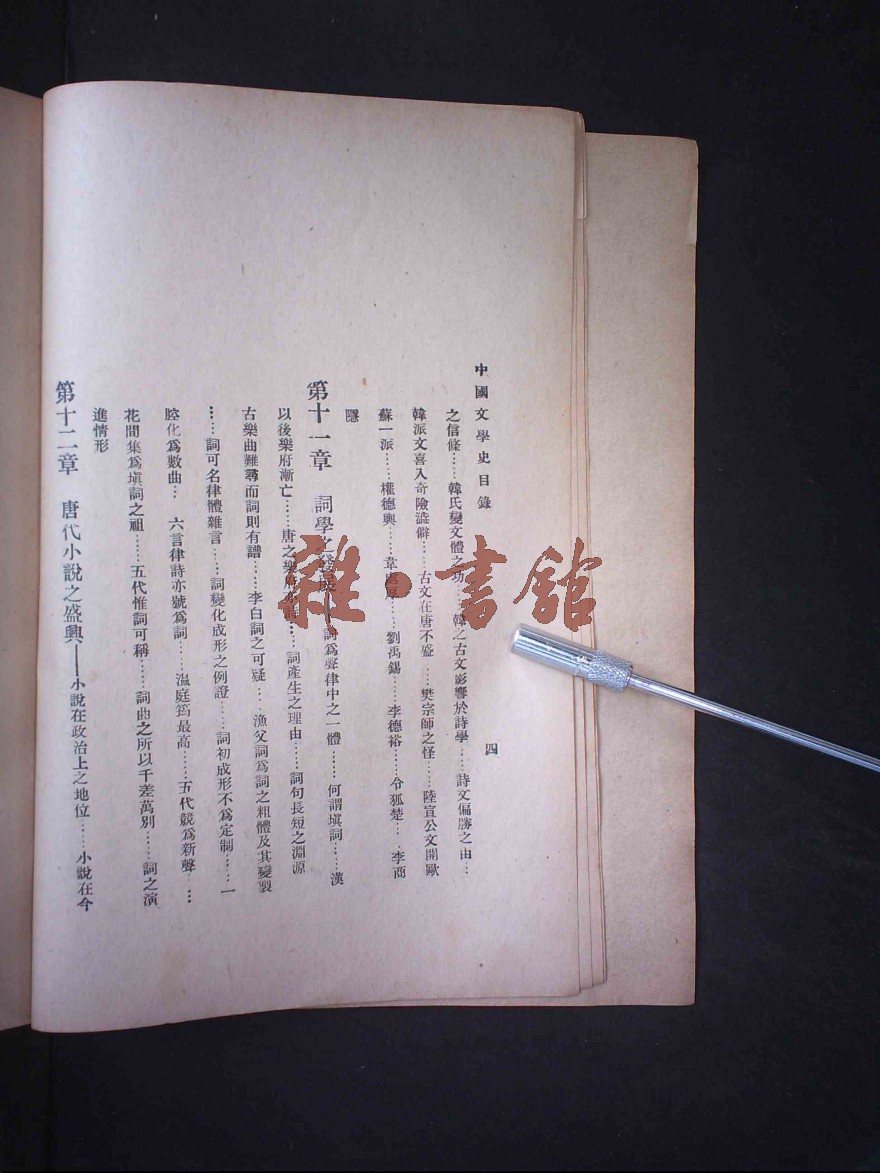 中國文學史目錄
四
之信條……韓氏變文體之功……韓之古文影響於詩學……詩文偏勝之由…
韓派文喜入奇險澁僻……古文在唐不盛…樊宗師之怪……陸宣公文開歐
蘇一派……權德輿……韋處厚……劉禹錫……李德裕……令狐楚……李商
隱
第十一章 詞學之發展——詞爲聲律中之一體……何謂塡詞……漢
以後樂府漸亡……唐之樂府……詞產生之理由……詞句長短之淵源
古樂曲難尋而詞則有譜……李白詞之可疑…漁父詞爲詞之粗體及其變製
……詞可名律體雜言……詞變化成形之例證……詞初成形不爲定制……一
腔化爲數曲…六言律詩亦號爲詞……溫庭筠最高……五代競爲新聲…
花間集爲塡詞之祖……五代惟詞可稱……詞曲之所以千差萬別……詞之演
進情形
第十二章 唐代小說之盛興——小說在政治上之地位……小說在今
雜·書館